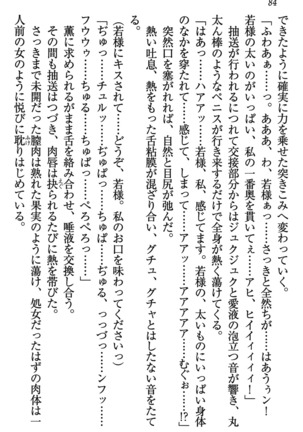 84
できたように確実に力を乗せた突きこみへ変わっていく。
「ふわあぁ……っ。あああ、わ、若様ぁっ……さっきと全然ちが……はあぅン！
若様の太いのがいっぱい、私の一番奥を貫いて……アヒ、ヒイイィィィイ！」
抽送が行われるにつれて交接部分からはジュクジュクと愛液の泡立つ音が響き、丸
太ん棒のようなペニスが行き来するだけで全身が熱く蕩けてくる。
「はあっ……ハアアァ……若様、私、感じてます。若様の、太いものにいっぱい身体
のなかを穿たれて……感じて、しまって……アアァッ……アアアアアッ……むぐぉ!?」
突然口を塞がれれば、自然と目尻が弛んだ。
熱い吐息、熱をもった舌粘膜が混ざり合い、グチュ、グチャとはしたない音をたて
（若様にキスされて……どうぞ、若様。私のお口を味わってくださいっ）
「ぢゅっ……チュルッ……ぢゅぱっ……ちゅぱっ……ぢゅる、っっづっ……ンフッ……
フウウゥ……ちゅる……ちゅぱっ……ぺろぺろっ……」
薫に求められるがまま舌を絡み合わせ、唾液を交換し合う。
その間も抽送はつづき、肉唇は抉られるたびに熱を帯びた。
さっきまで未開だった膣肉は熟れた果実のように蕩け、処女だったはずの肉体は一
人前の女のように悦びに耽りはじめている。